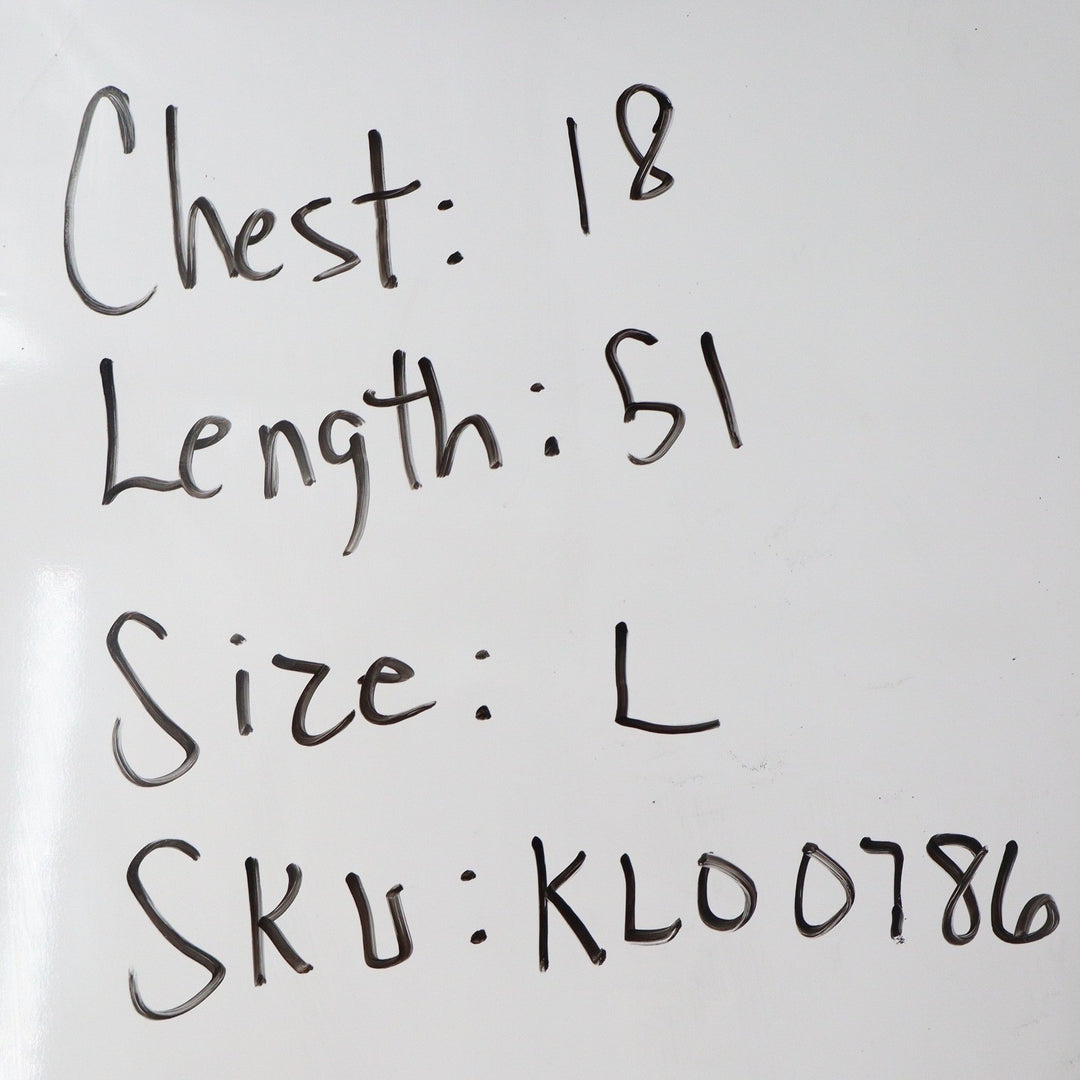 Chest: 18
Length: 51
Size: L
SKU: KL00786